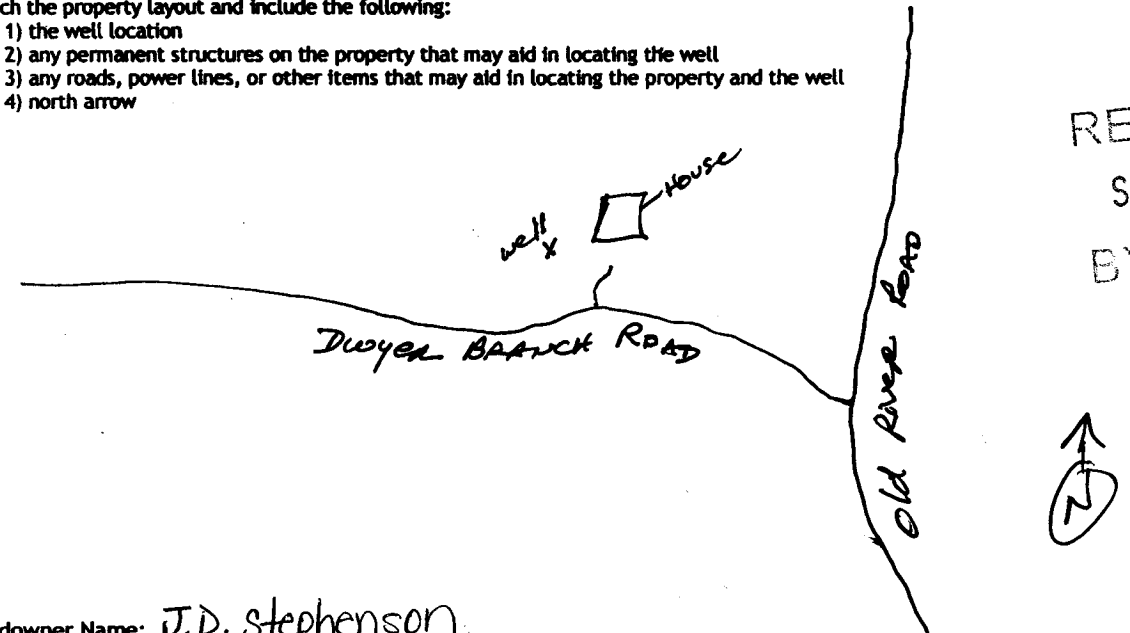 ch the property layout and include the following:
1) the well location
2) any permanent structures on the property that may aid in locating the well
3) any roads, power lines, or other items that may aid in locating the property and the well
4) north arrow
RE
S
BY
House
well
x
Old River Road
Dwyer Branch Road
N
downer Name: J.D. Stephenson